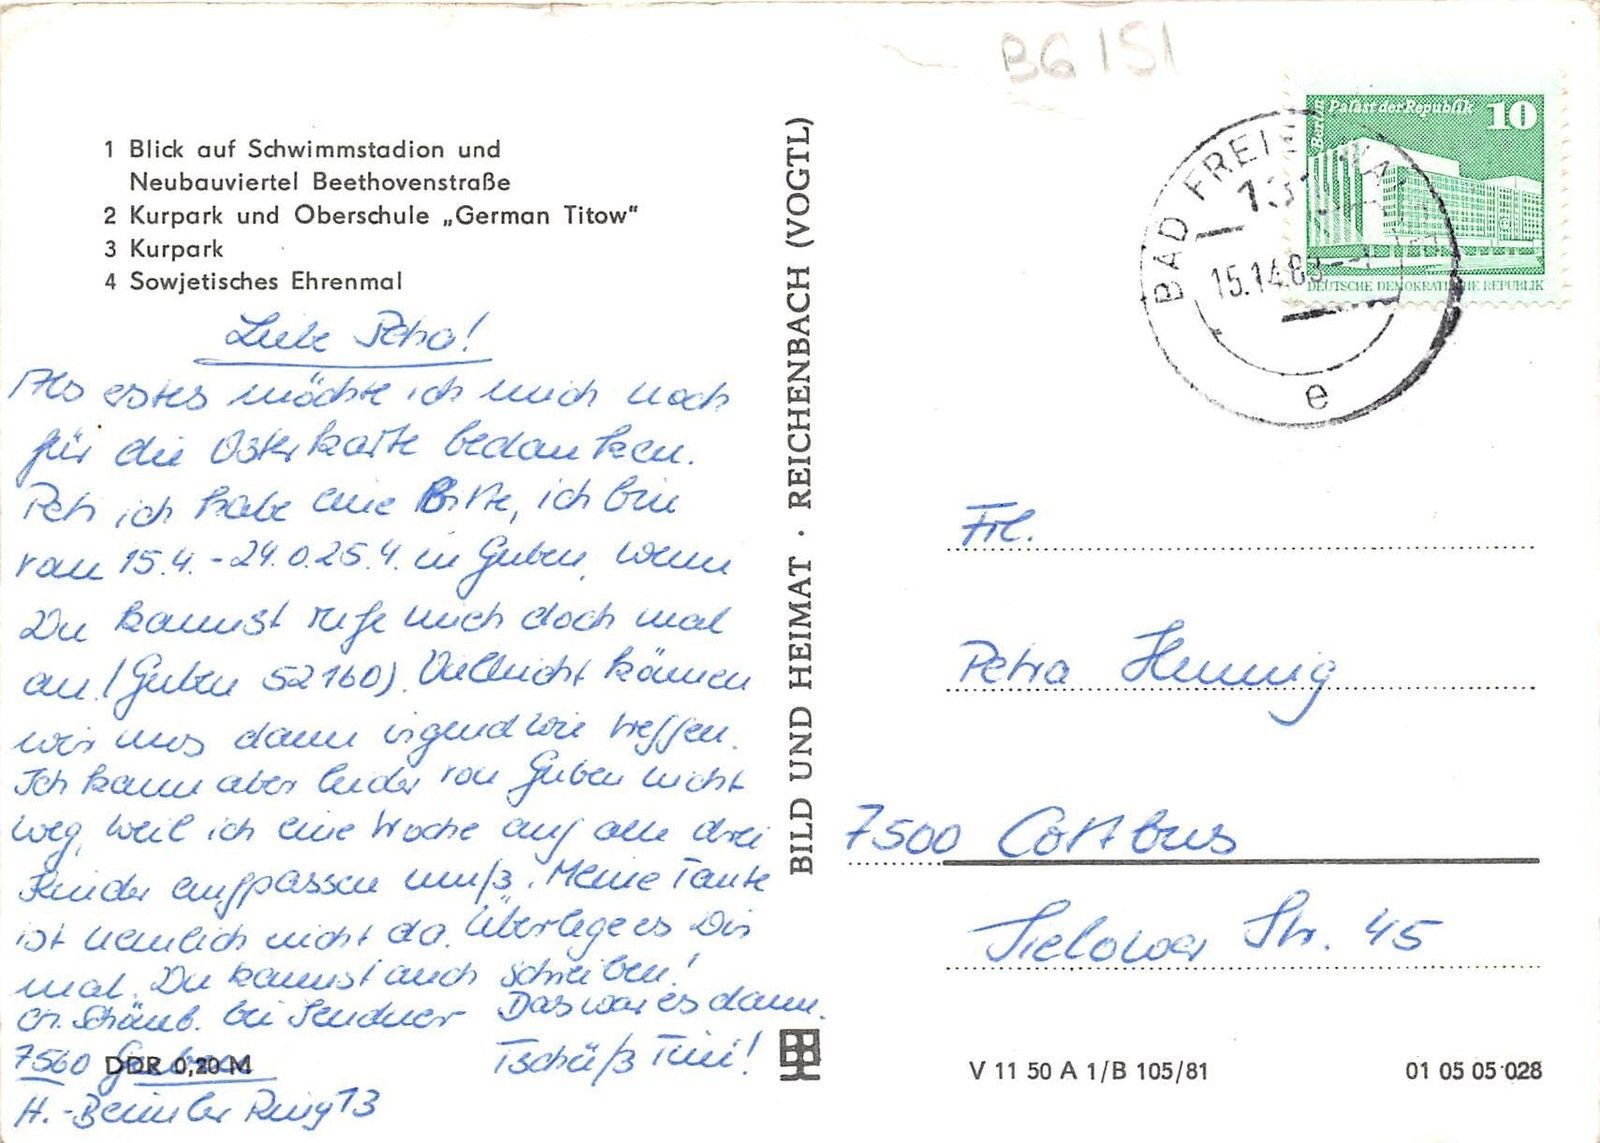 BG 151
1 Blick auf Schwimmstadion und
Neubauviertel Beethovenstraße
2 Kurpark und Oberschule „German Titow"
3 Kurpark
4 Sowjetisches Ehrenmal
Liebe Petra!
Als estes möchte ich mich noch
für die Osterkarte bedanken.
Petr ich habe eine Bitte, ich bin
vom 15.4.-24.o.25.4. in Guben, wenn
Du kannst rufe mich doch mal
an! (Guben 52160). Vielleicht können
wir uns dann irgendwie treffen.
Ich kann aber leider von Guben nicht
weg, weil ich eine Woche auf alle drei
Kinder aufpassen muß. Meine Tante
ist nemlich nicht da. Überlege es Dir
mal. Du kannst auch schreiben!
bei Lendner Das war es dann.
7560 Guben Tschüß Tini!
H.-Beimler Ring 13
DDR 0,20 M
BILD UND HEIMAT · REICHENBACH (VOGTL)
Berlin Palast der Republik 10
DEUTSCHE DEMOKRATISCHE REPUBLIK
BAD FREIENWALDE
131
15.14.83
e
Frl.
Petra Hennig
7500 Cottbus
Sielower Str. 45
V 11 50 A 1/B 105/81
01 05 05 028